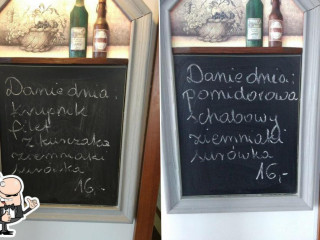 Danie dnia:
krupnik
filet
z kurczaka
ziemniaki
surówka
16,-
Danie dnia:
pomidorowa
schabowy
ziemniaki
surówka
16,-